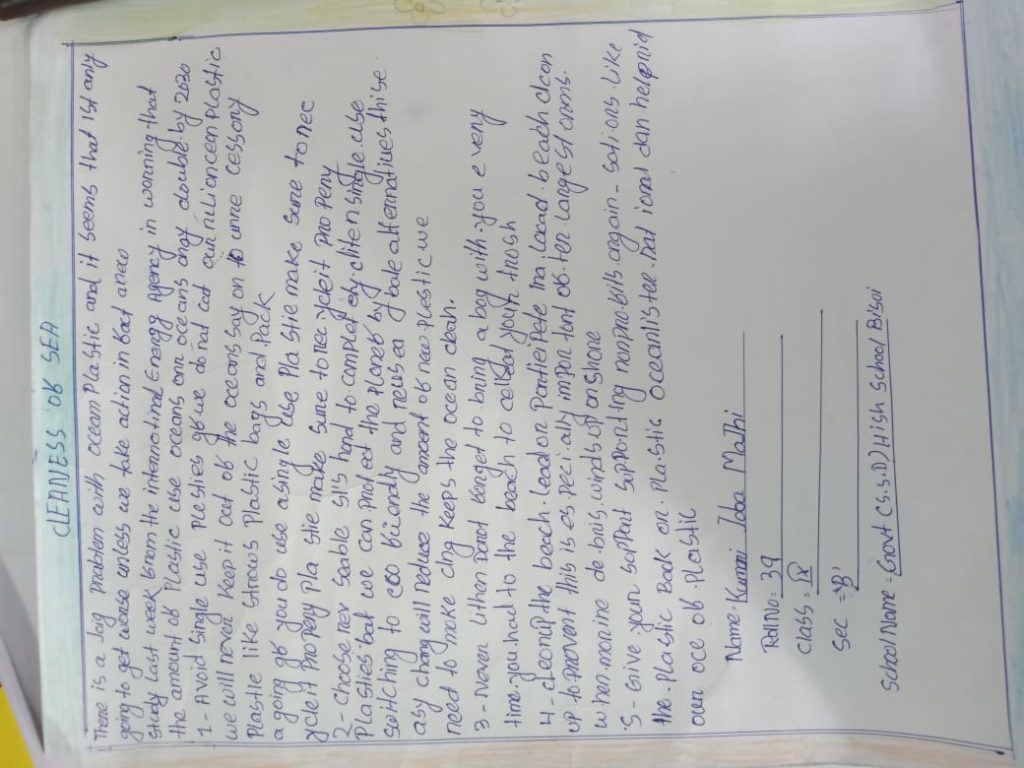 CLEANESS OF SEA
There is a big problem with ocean Plastic and it seems that 1st any
going to get worse unless we take action in fact anew
study last week from the internotinal Energy Agency in worning that
the amount of Plastic cuse oceans onr oceans may double by 2030
1 - Avoid single use plesties gf we do not cat own nilion ceen plastic
we will never keep it out of the oceans say on to unne cessory
Plastie like straws Plastic bags and Pack
a going gf you do use asingle use Plastie make sure to rec
ycle it Pro Pery Pla stie make sure to rec ycle it pro peny
2 - choose rer seable sils hand to complet ely eliten single.use
Plasties.but we can prot ect the planet by
swttching to eco friendly and reus ea g bale alternatives thise
asy chang will reduce the ament of new plestic we
need to make ching keeps the ocean clean.
3 - Never lither Donot forget to bring a bag with.you e very
time.you had to the beach to collect your trash
4 - cleonup the beach.lead on Partieipete in a local beach clean
up to Prevont this is es peci ally impor tant af ter langest orms.
when marine de brais.winds up on shore
5 - Give your support supporting nonprobits again - sations.like
the.Plastic Back on.Plastic oceanlistee.nat ional can helpnid
our oce of.plastic
Name - Kumari Toba Malhi
Roll No = 39
Class = IX
Sec = 'B'
School Name = Govt (S.S.D) High School Bisoi